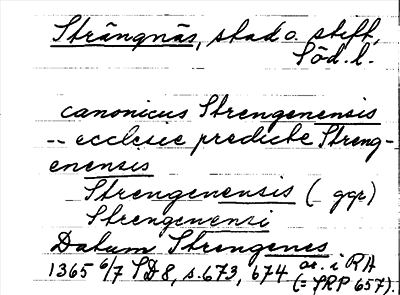 Strängnäs, stad o. stift,
Söd. l.
canonicus Strengenensis
-- ecclesie predicte Streng-
enensis
Strengenensis (_ ggr)
Strengenensi
Datum Strengenes
1365 6/7 SD 8, s. 673, 674 or. i RA
(= SRP 657).